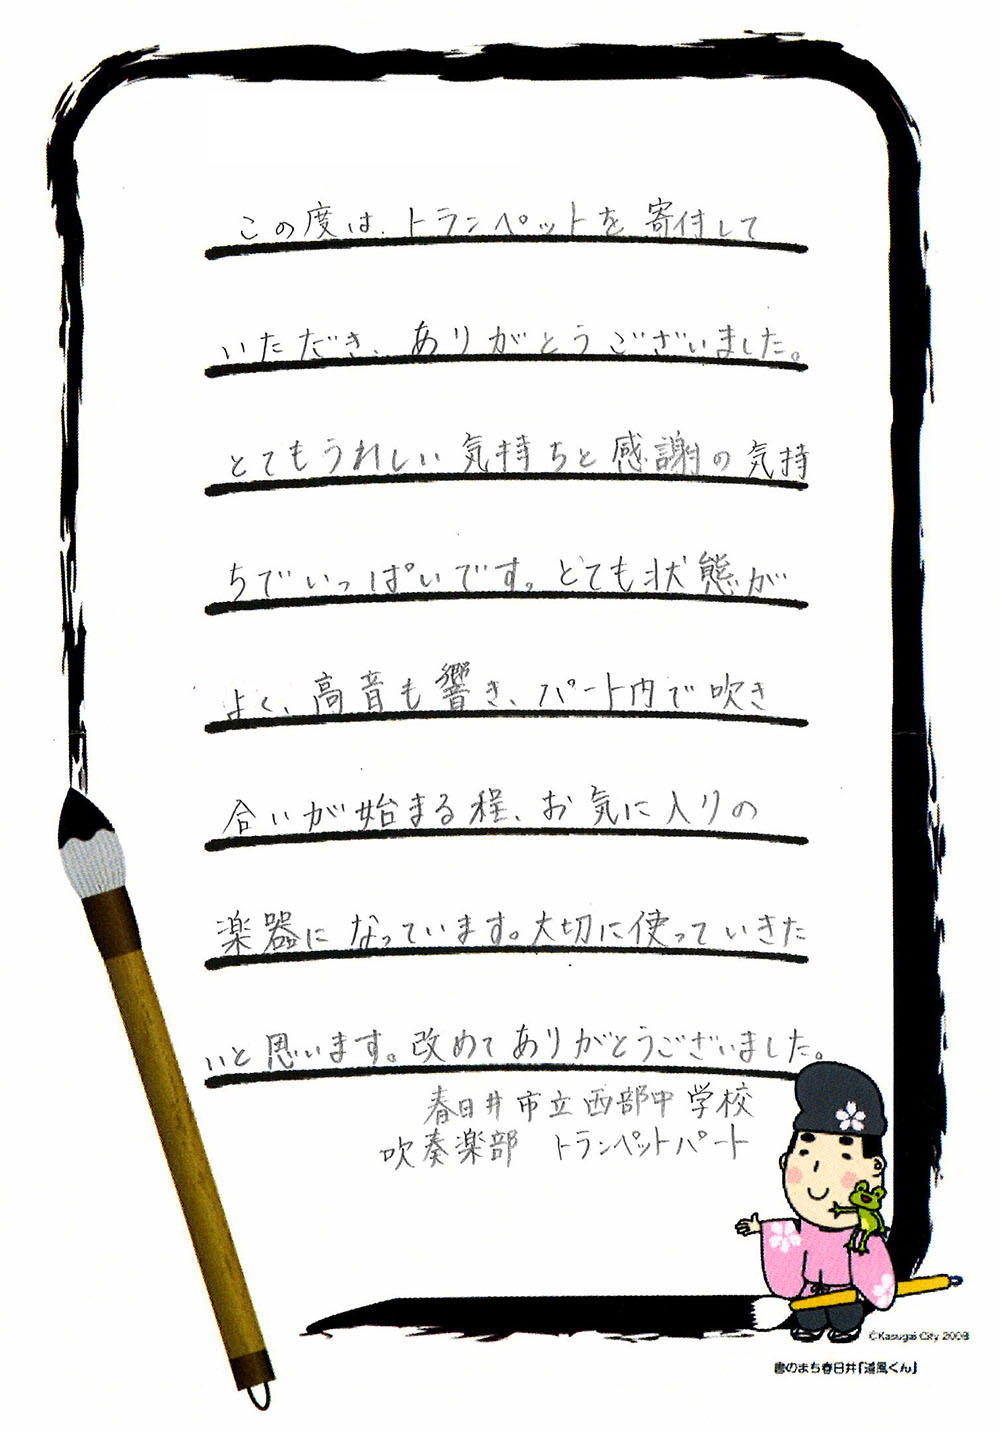 この度は、トランペットを寄付して
いただき、ありがとうございました。
とてもうれしい気持ちと感謝の気持
ちでいっぱいです。とても状態が
よく、高音も響き、パート内で吹き
合いが始まる程、お気に入りの
楽器になっています。大切に使っていきた
いと思います。改めてありがとうございました。
春日井市立西部中学校
吹奏楽部 トランペットパート
©Kasugai City 2008
書のまち春日井「道風くん」